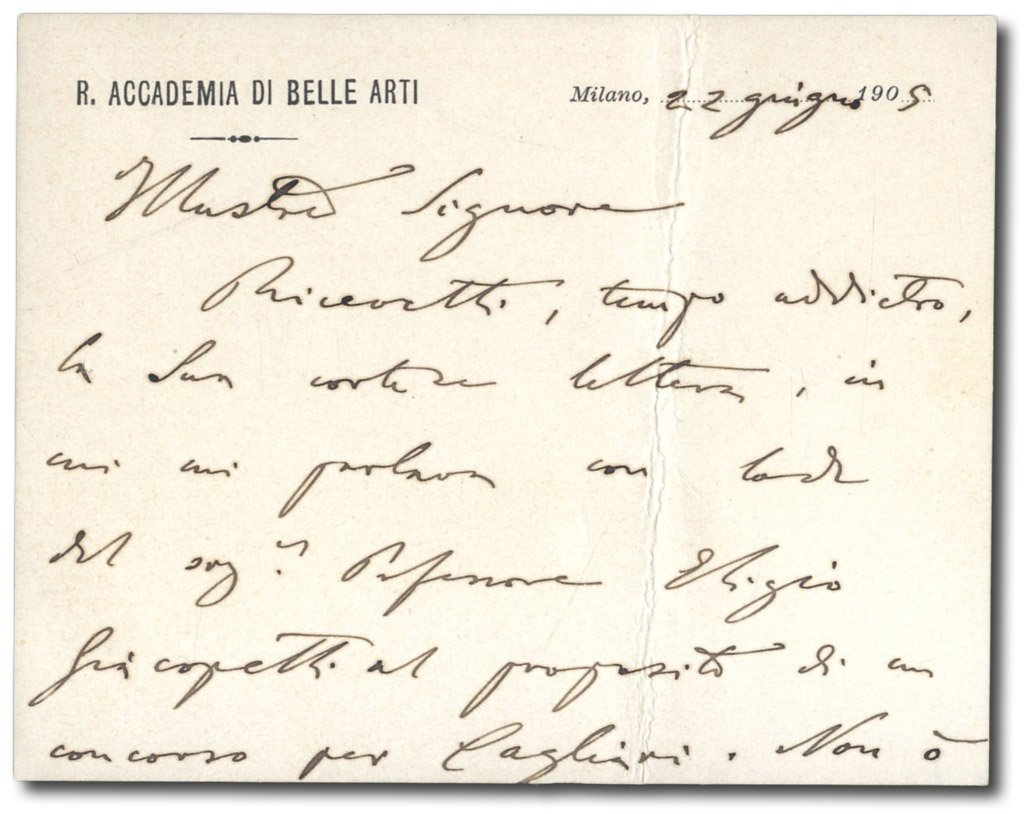 R. ACCADEMIA DI BELLE ARTI
Milano, 22 giugno 1905
Illustre Signore
Ricevetti, tempo addietro,
la Sua cortese lettera, in
cui mi parlava con lode
del sig.r Professore Eligio
Giacopetti al proposito di un
concorso per Cagliari. Non ò